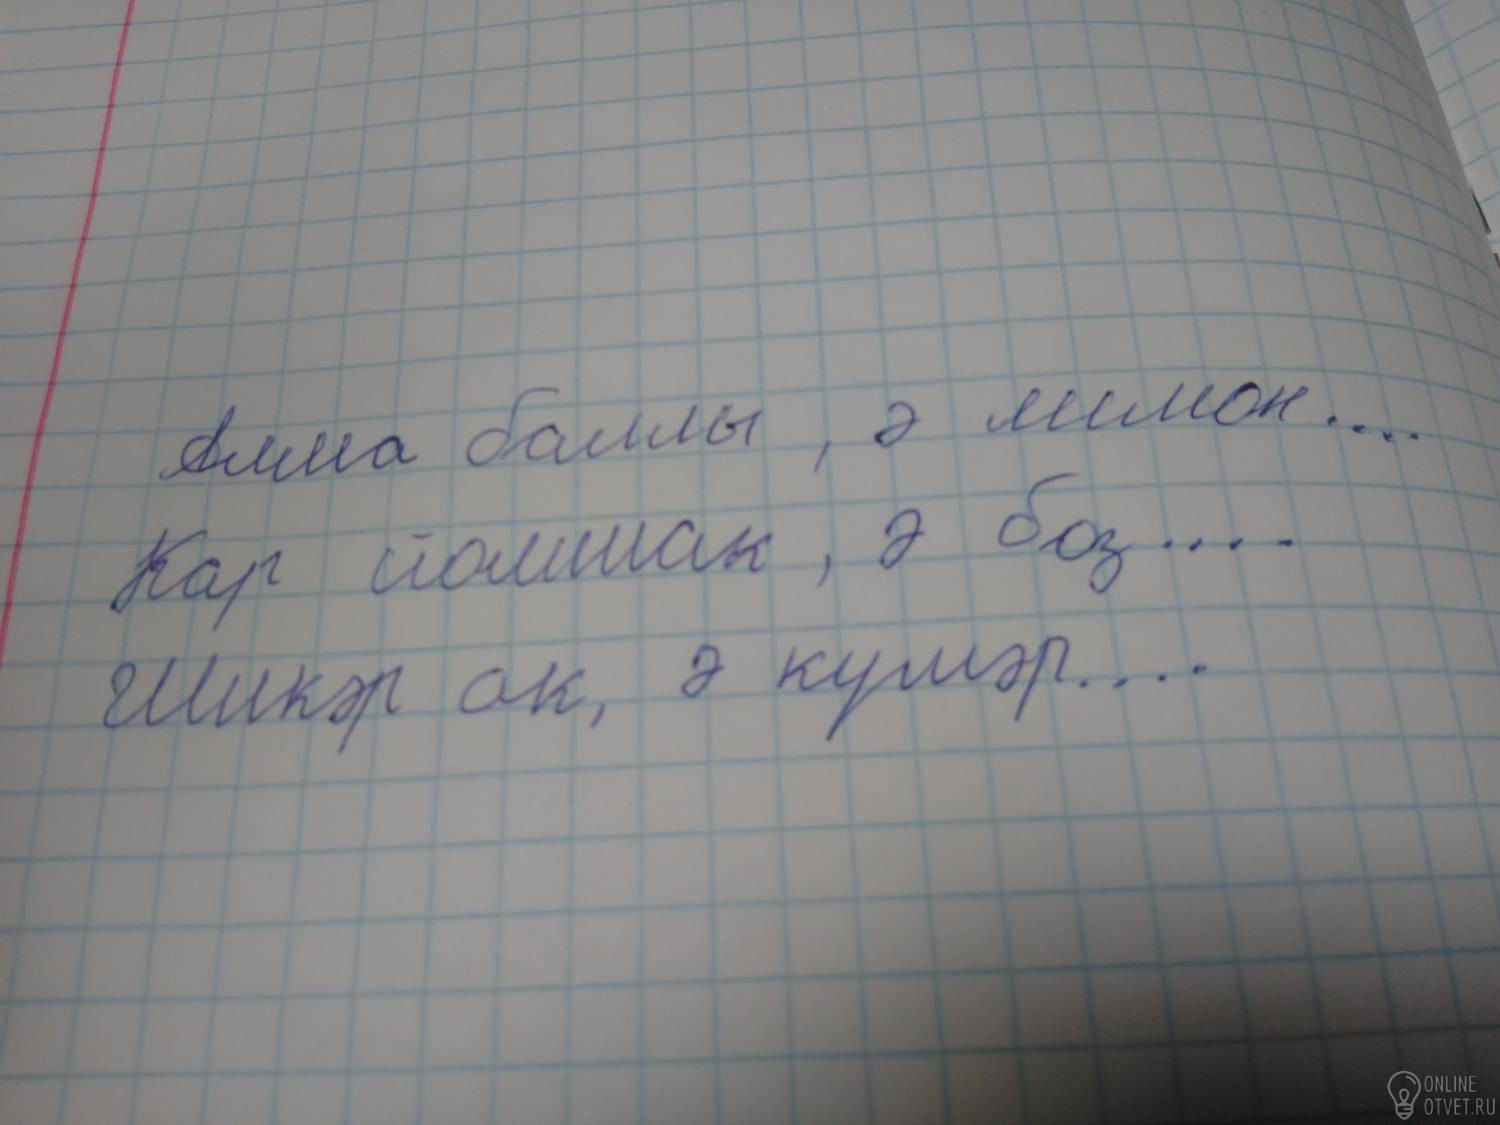 Алма баллы, ә лимон....
Кар йомшак, ә боз....
Шикәр ак, ә күмәр....
ONLINE
OTVET.RU